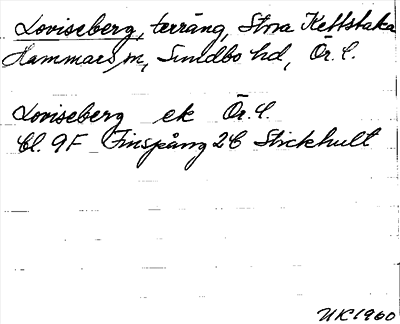 Loviseberg, terräng, Stora Kettstaka
Hammars sn, Sundbo hd, Ör. l.
Loviseberg ek Ör. l.
bl. 9F Finspång 2b Stickhult
UK 1960